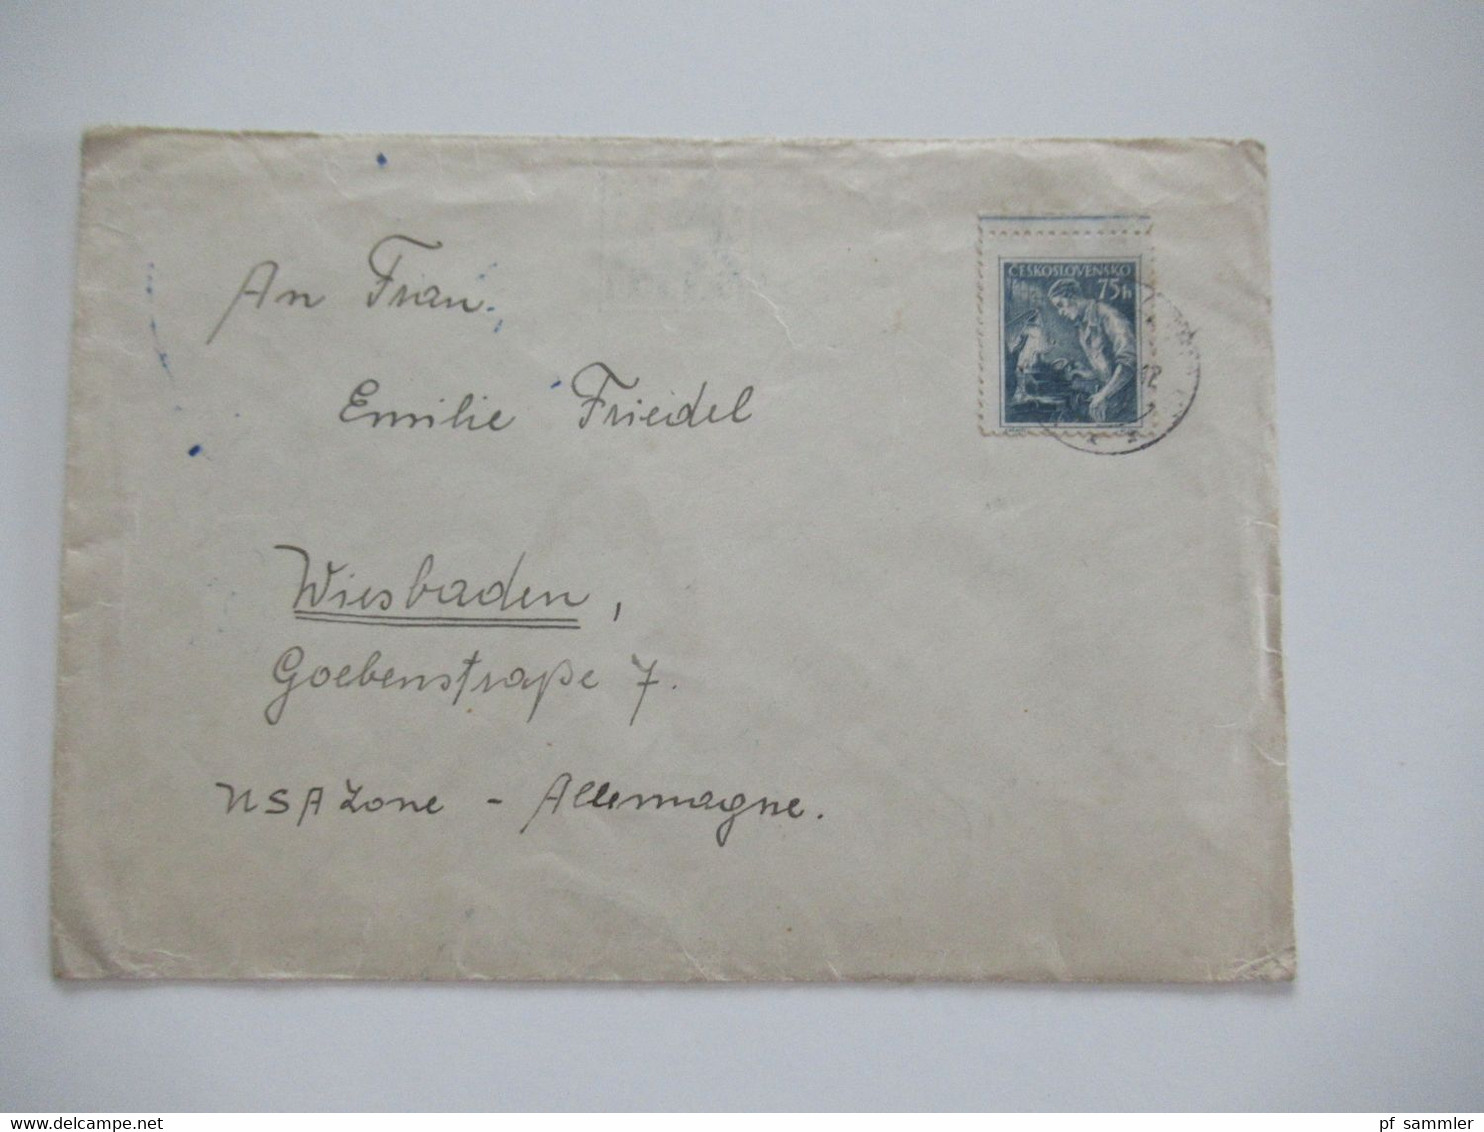 An Frau.
Emilie Friedel
Wiesbaden,
Goebenstraße 7.
USA Zone - Allemagne.
ČESKOSLOVENSKO
75h
12
www.delcampe.net
pf_sammler